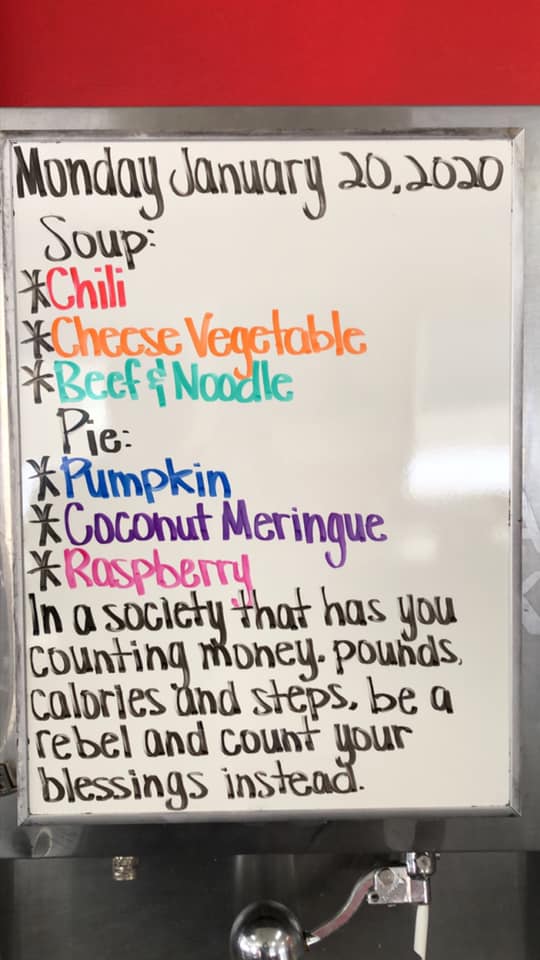 Monday January 20, 2020
Soup:
*Chili
*Cheese Vegetable
*Beef & Noodle
Pie:
*Pumpkin
*Coconut Meringue
*Raspberry
In a society that has you
counting money, pounds,
calories and steps, be a
rebel and count your
blessings instead.